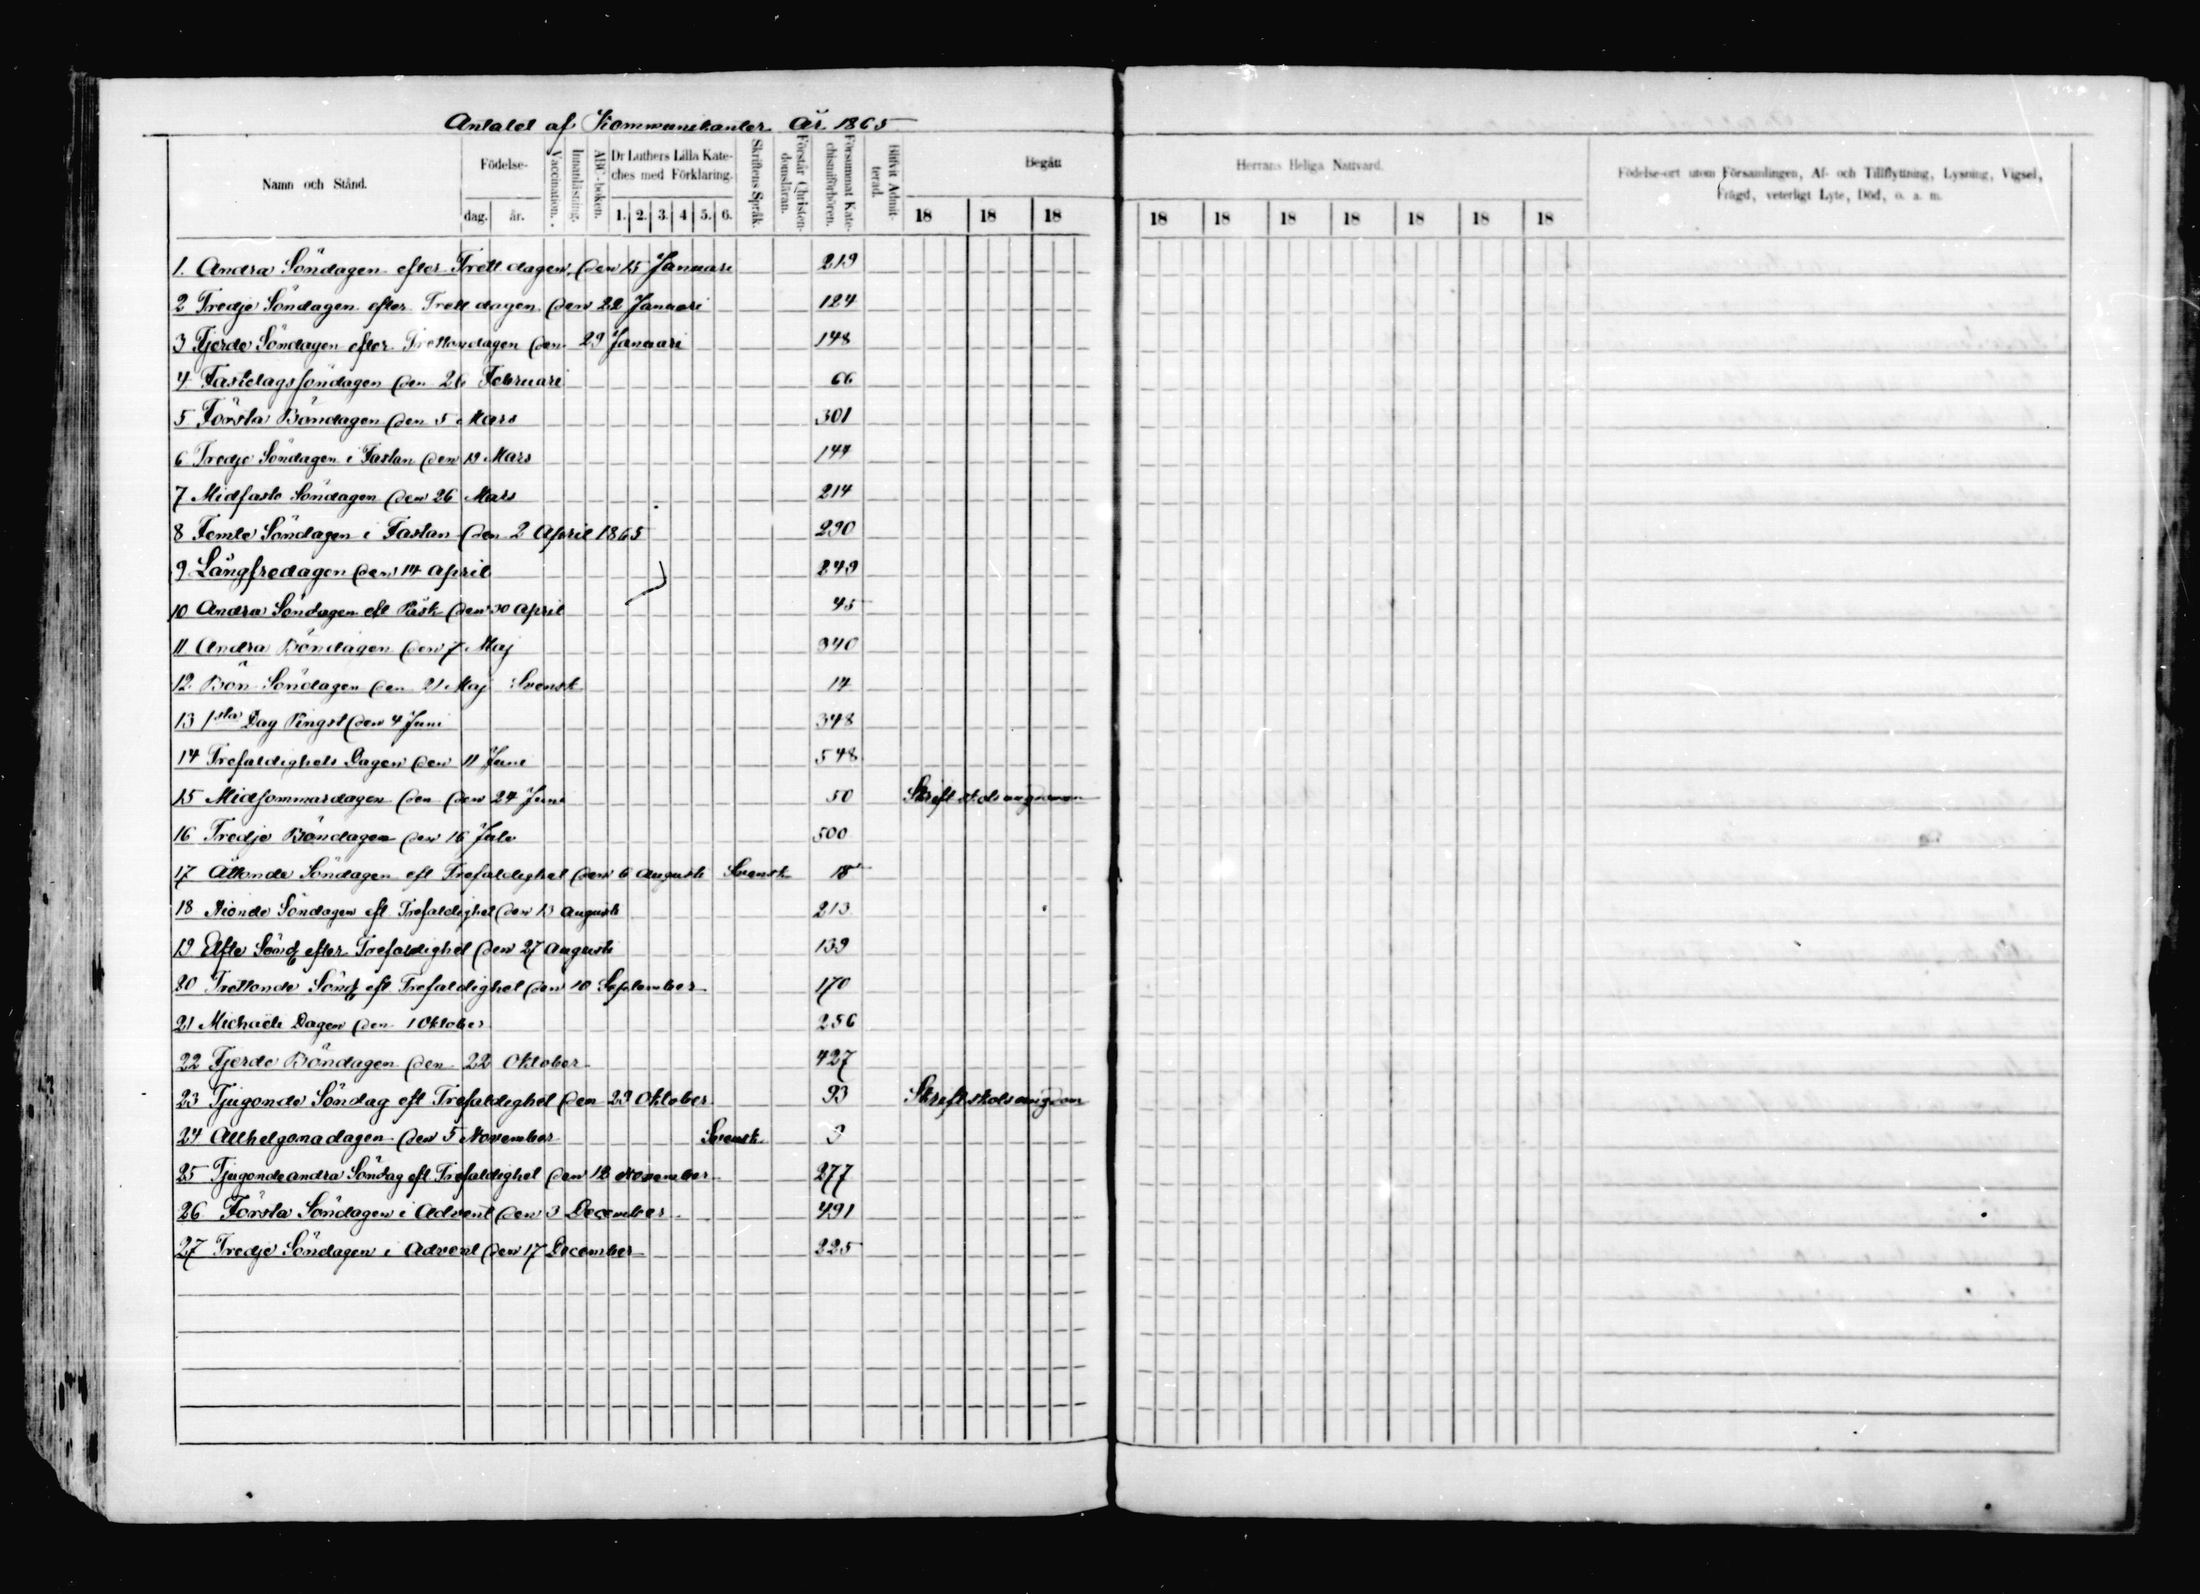 Antalet af Kommunikanter År 1865
Namn och Stånd.
Födelse-
dag. år.
Vaccination.
Innanläsning.
ABC-boken.
Dr Luthers Lilla Kate-
ches med Förklaring.
1. 2. 3. 4 5. 6.
Skriftens Språk.
Förstår Christen-
domsläran.
Försummat Kate-
chismiförhören.
Blifvit Admit-
terad.
Begått
18 18 18
Herrans Heliga Nattvard.
18 18 18 18 18 18 18
Födelse-ort utom Församlingen, Af- och Tillflyttning, Lysning, Vigsel,
Frägd, veterligt Lyte, Död, o. a. m.
1. Andra Söndagen efter Trett dagen den 15 Januari 219
2 Tredje Söndagen efter Trett dagen den 22 Januari 124
3 Fjerde Söndagen efter Trettondagen den 29 Januari 148
4 Fastlagssöndagen den 26 Februari 66
5 Första Böndagen den 5 Mars 301
6 Tredje Söndagen i Fastan den 19 Mars 144
7 Midfasto Söndagen den 26 Mars 214
8 Femte Söndagen i Fastan den 2 April 1865 290
9 Långfredagen den 14 April 249
10 Andra Söndagen eft Påsk den 30 April 45
11 Andra Böndagen den 7 Maj 340
12. Bön Söndagen den 21 Maj Svensk 14
13 1sta Dag Pingst den 4 Juni 348
14 Trefaldighets Dagen den 11 Juni 548
15 Midsommardagen den den 24 Juni 50 Skriftskolsungdomen
16 Tredje Böndagen den 16 Julo 500
17 Åttonde Söndagen eft Trefaldighet den 6 Augusti Svensk 18
18 Nionde Söndagen eft Trefaldighet den 13 Augusti 213
19 Elfte Sönd efter Trefaldighet den 27 Augusti 139
20 Trettonde Sönd eft Trefaldighet den 10 September 170
21 Michaeli Dagen den 1 Oktober 256
22 Fjerde Böndagen den 22 Oktober 427
23 Tjugonde Söndag eft Trefaldighet den 29 Oktober 93 Skriftskolsungdom
24 Allhelgonadagen den 5 November Svensk 9
25 Tjugondeandra Söndag eft Trefaldighet den 12 November 277
26 Första Söndagen i Advent den 3 December 491
27 Tredje Söndagen i Advent den 17 December 225